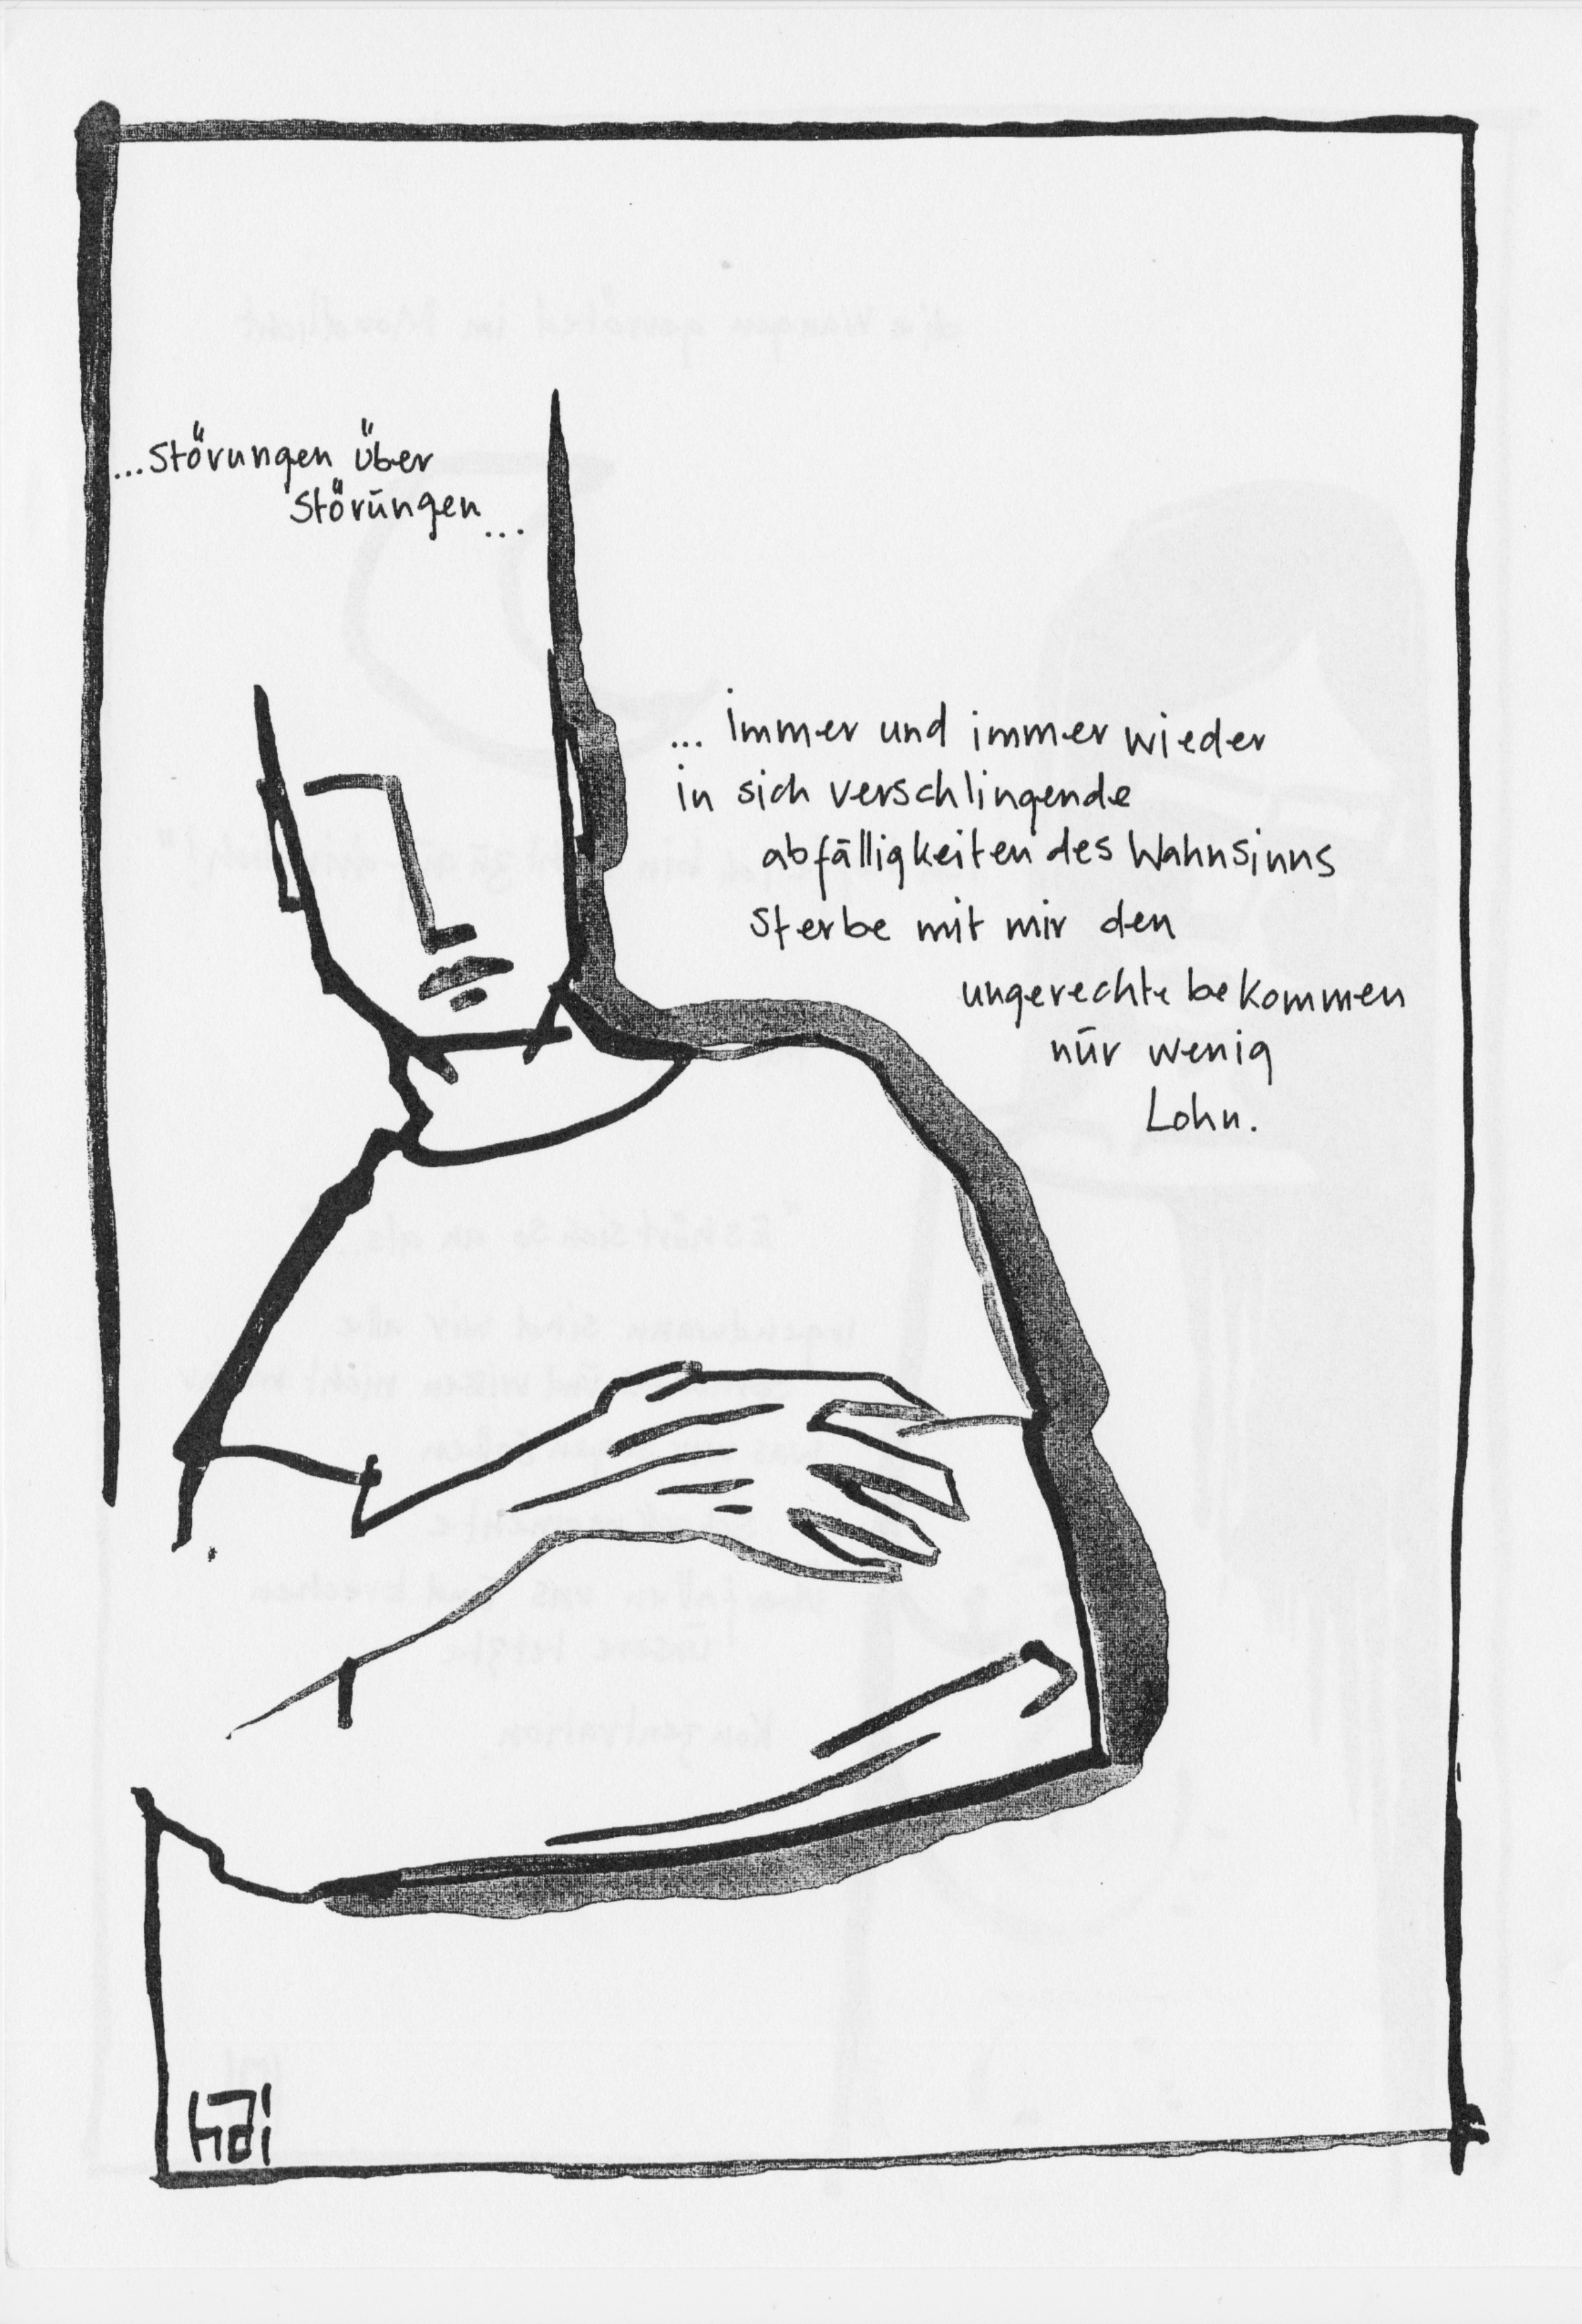 ...Störungen über
Störūngen...
... immer und immer wieder
in sich verschlingende
abfälligkeiten des Wahnsinns
Sterbe mit mir den
ungerechte bekommen
nūr wenig
Lohn.
hai